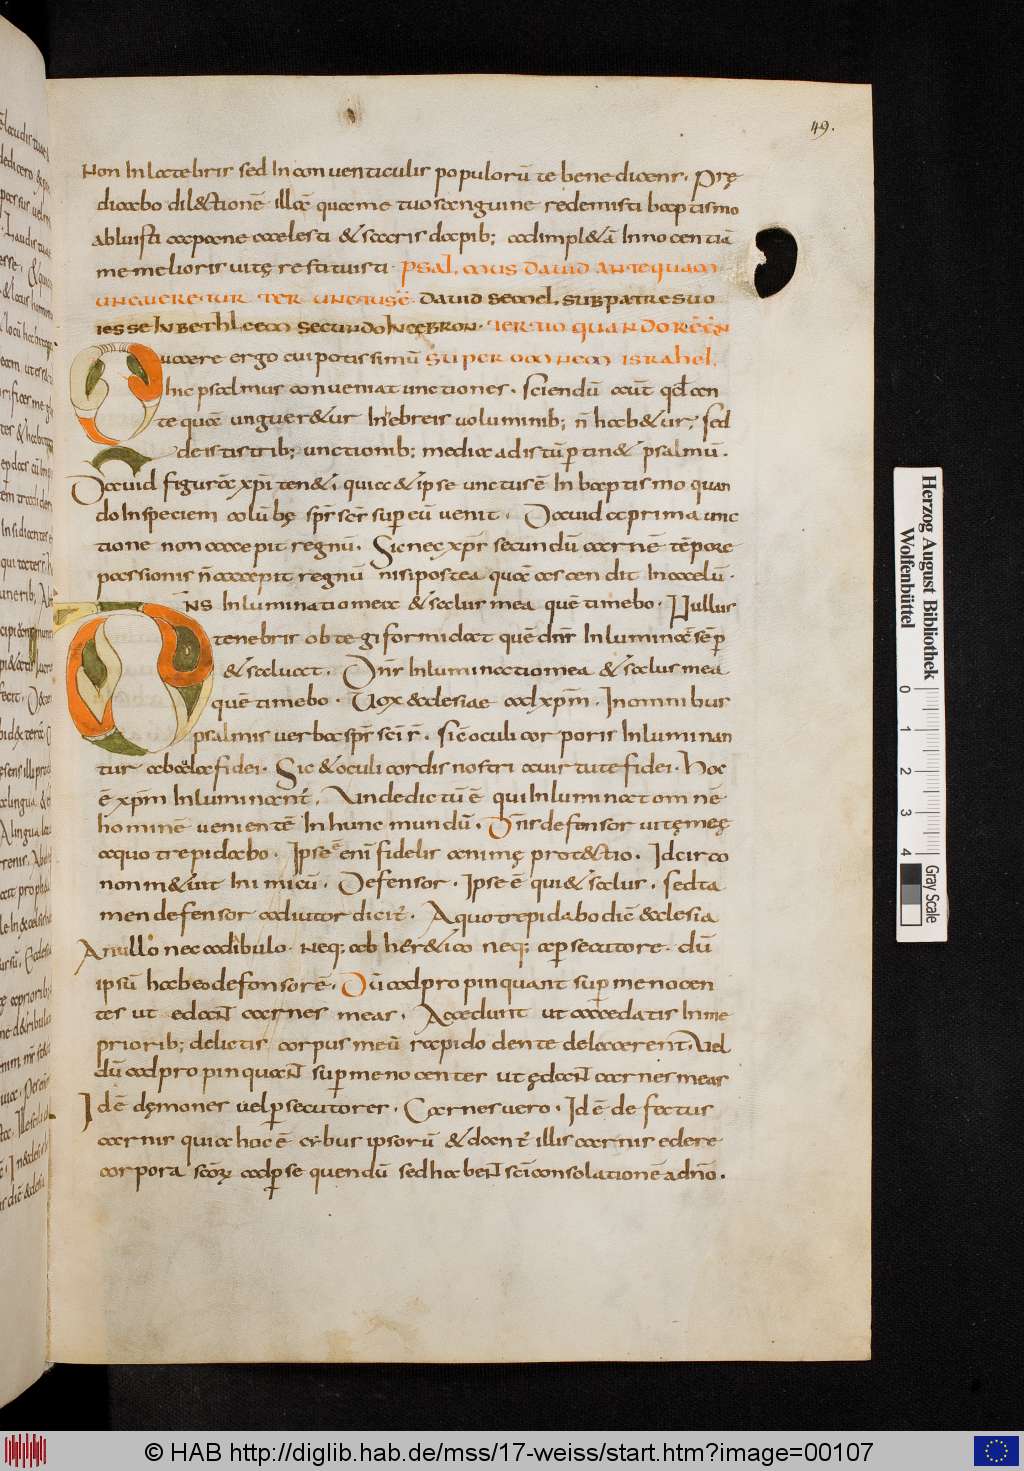 49.
Non In latebris sed In conventiculis populorū te benedicent. Prę
dicabo dil&tionē illā qua me tuo sanguine redemisti baptismo
abluisti ac pane caelesti & sacris dapib; ad impl&ā Innocentiā
me melioris vitę restituisti. Psal. mus david antequam
ungueretur ter unctus ē. David semel. sub patre suo
iesse In bethleem secundo In cębron. Tertio quando
quaere ergo cui potissimū super omnem israhel.
hic psalmus conveniat unctiones. Sciendū aut qd an
te quā unguer&ur In ebreis voluminib; n̄ hab&ur, sed
de istis trib; unctionib; media ad istū ptin& psalmū.
David figurā xpi ten&, quia & ipse unctus ē In baptismo quan
do In speciem colūbę sps scs sup eū venit. David a prima unc
tione non accepit regnū. Sic nec xps secundū carnē tēpore
passionis n̄ accepit regnū nisi postea quā ascendit In caelū.
DNS Inluminatio mea & salus mea quē timebo. Nullus
tenebris obtegi formidat quē dns Inluminat sēp
& salvat. Dns Inluminatio mea & salus mea
quē timebo. Vox aecclesiae ad xpm. In omnibus
psalmis verba sps sci s. Sic oculi corporis Inluminan
tur ab fidei. Sic & oculi cordis nostri a virtute fidei. Hoc
ē xpm Inluminant. Unde dictū ē qui Inluminat omnē
hominē venientē In hunc mundū. Dns defensor vitę meę
a quo trepidabo. Ipse enī fidelis animę prot&tio. Idcirco
non m&uit Inimicū. Defensor. Ipse ē qui & salus. sed ta
men defensor adiutor dicit. A quo trepidabo dic aecclesia
A nullo nec a dibulo. Neq; ab her&ico neq; a psecutore. dū
ipsū habeo defensorē. Dū adpropinquant sup me nocen
tes ut edant carnes meas. Accedunt ut accedatis In me
priorib; delictis corpus meū rapido dente delacerent. Vel
dū adpropinquant sup me nocentes ut ędant carnes meas
Id ē dęmones vel psecutores. Carnes vero. Id ē defectus
carnis quia hoc ē cibus ipsorū & dant illis carnis edere
corpora scorum ad psequendū sed habent sci consolationē a dno.
Herzog August Bibliothek
Wolfenbüttel
0 1 2 3 4
Gray Scale
© HAB http://diglib.hab.de/mss/17-weiss/start.htm?image=00107